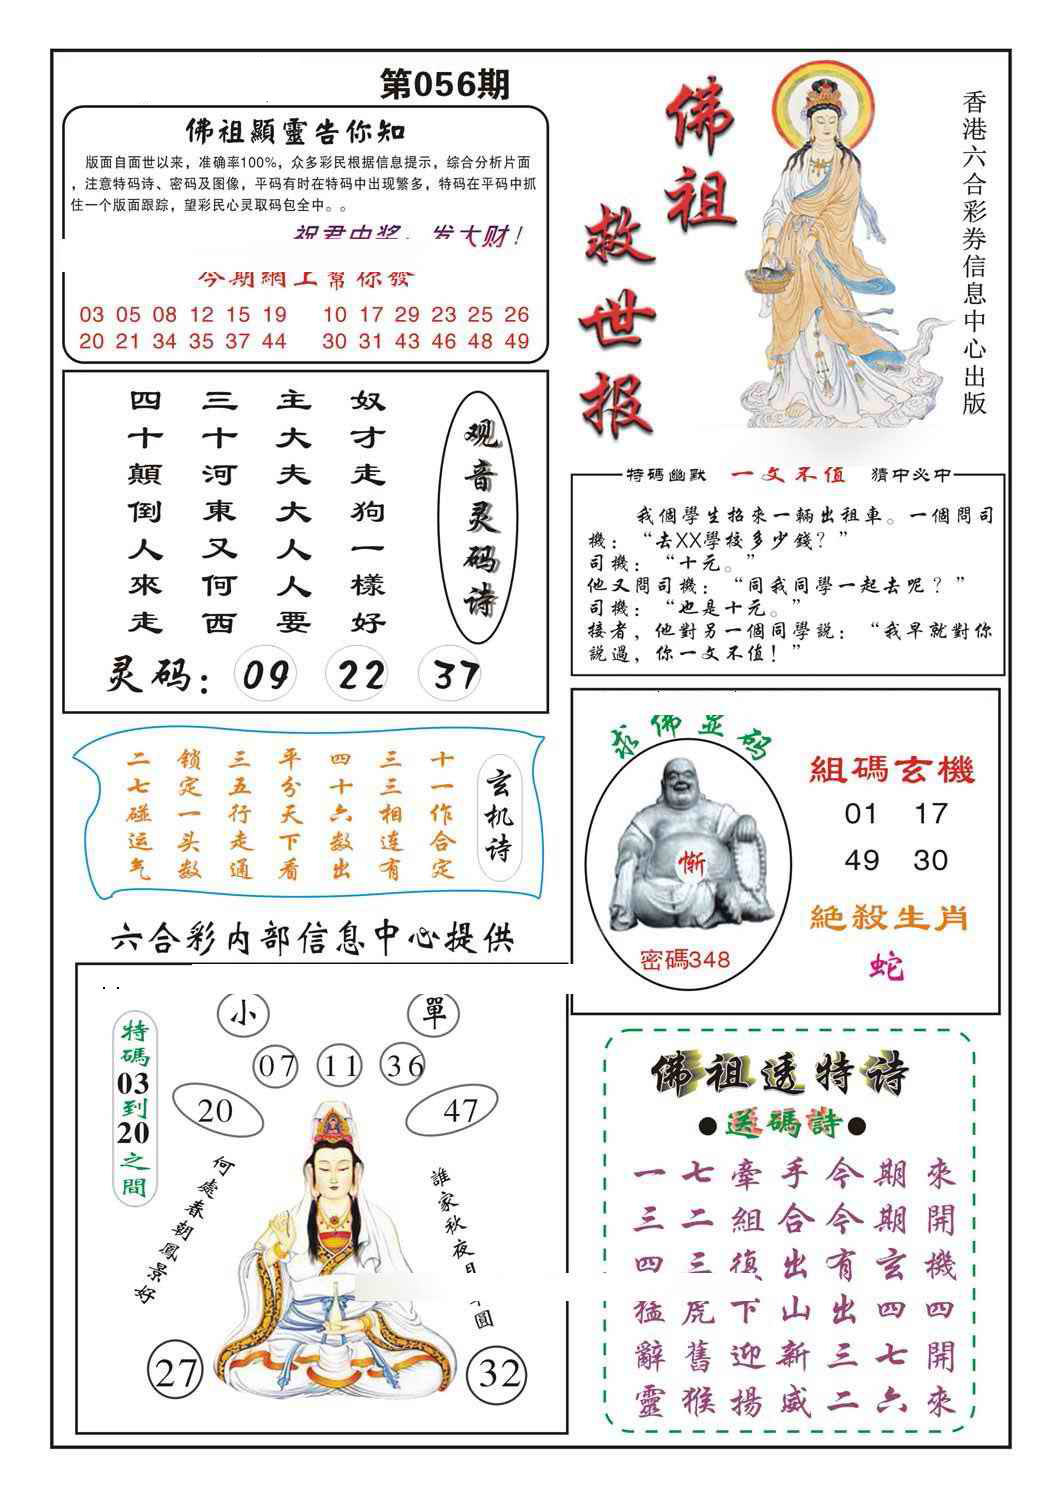 第056期
佛祖顯靈告你知
版面自面世以来，准确率100%，众多彩民根据信息提示，综合分析片面
，注意特码诗、密码及图像，平码有时在特码中出现繁多，特码在平码中抓
住一个版面跟踪，望彩民心灵取码包全中。。
祝君中奖，发大财！
今期網上幫你發
03 05 08 12 15 19 10 17 29 23 25 26
20 21 34 35 37 44 30 31 43 46 48 49
佛祖
救世报
香港六合彩券信息中心出版
观音灵码诗
奴才走狗一樣好
主大夫大人人要
三十河東又何西
四十顛倒人來走
灵码：09 22 37
特碼幽默 一文不值 猜中必中
我個學生招來一輛出租車。一個問司
機：“去XX學校多少錢？”
司機：“十元。”
他又問司機：“同我同學一起去呢？”
司機：“也是十元。”
接者，他對另一個同學説：“我早就對你
説過，你一文不值！”
玄机诗
十一作合定
三三相连有
四十六数出
平分天下看
三五行走通
锁定一头数
二七碰运气
求佛显码
惭
密碼348
組碼玄機
01 17
49 30
絶殺生肖
蛇
六合彩内部信息中心提供
特碼03到20之間
小 單
07 11 36
20 47
何處春朝鳳景好
誰家秋夜月
圓
27 32
佛祖透特诗
●送碼詩●
一七牽手今期來
三二組合今期開
四三復出有玄機
猛虎下山出四四
辭舊迎新三七開
靈猴揚威二六來